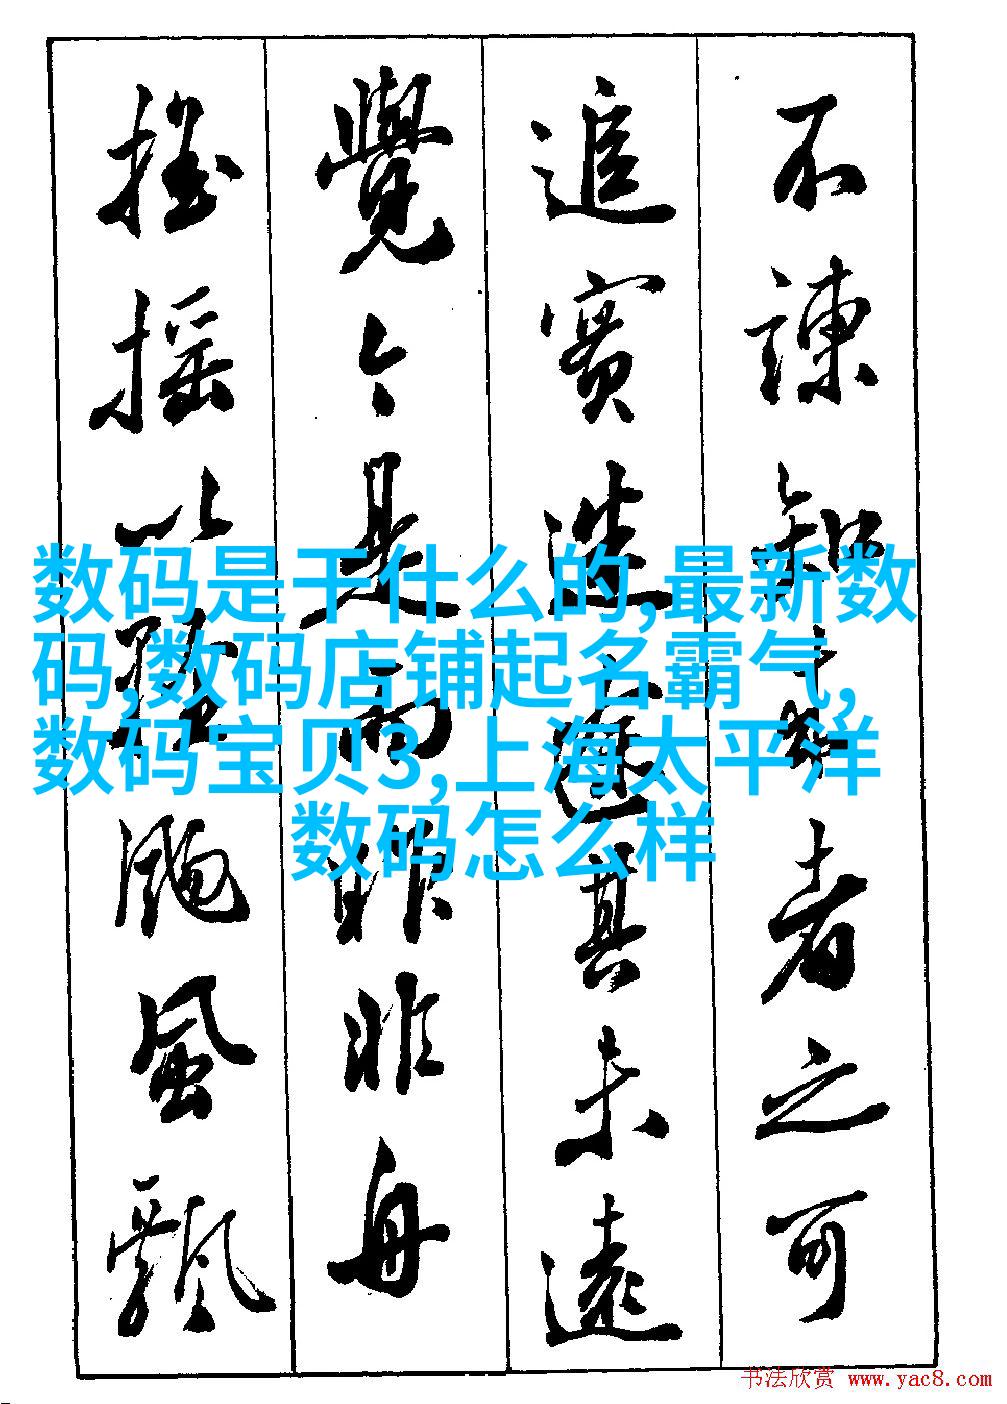 不諫知来者之可
追實迷途其未遠
覺今是而昨非舟
摇摇以輕颺風飄
数码是干什么的,最新数
码,数码店铺起名霸气,
数码宝贝3,上海太平洋
数码怎么样
书法欣赏 www.yac8.com